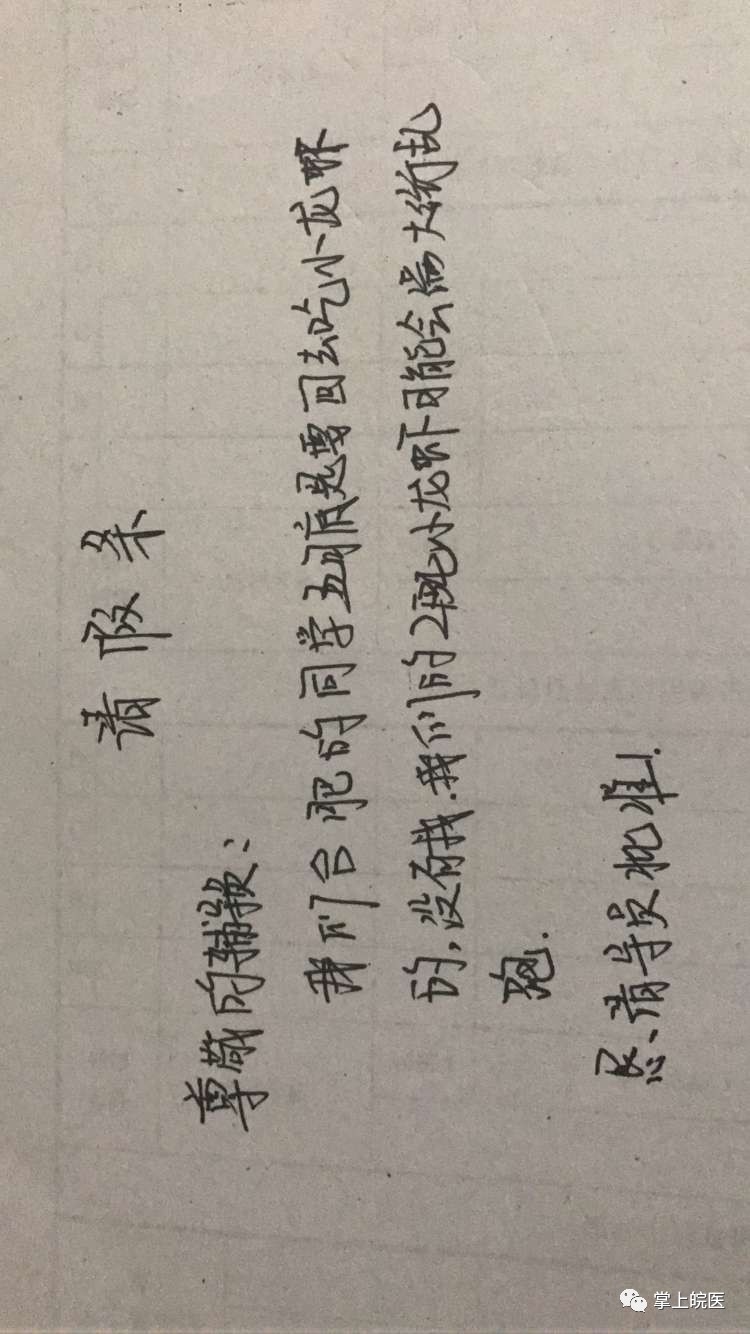 请假条
尊敬的辅:
我们合肥的同学五月底是要回去吃小龙虾
的,没有我.我们的小龙虾可能会满大街乱
跑.
恳请导员批准!
掌上皖医